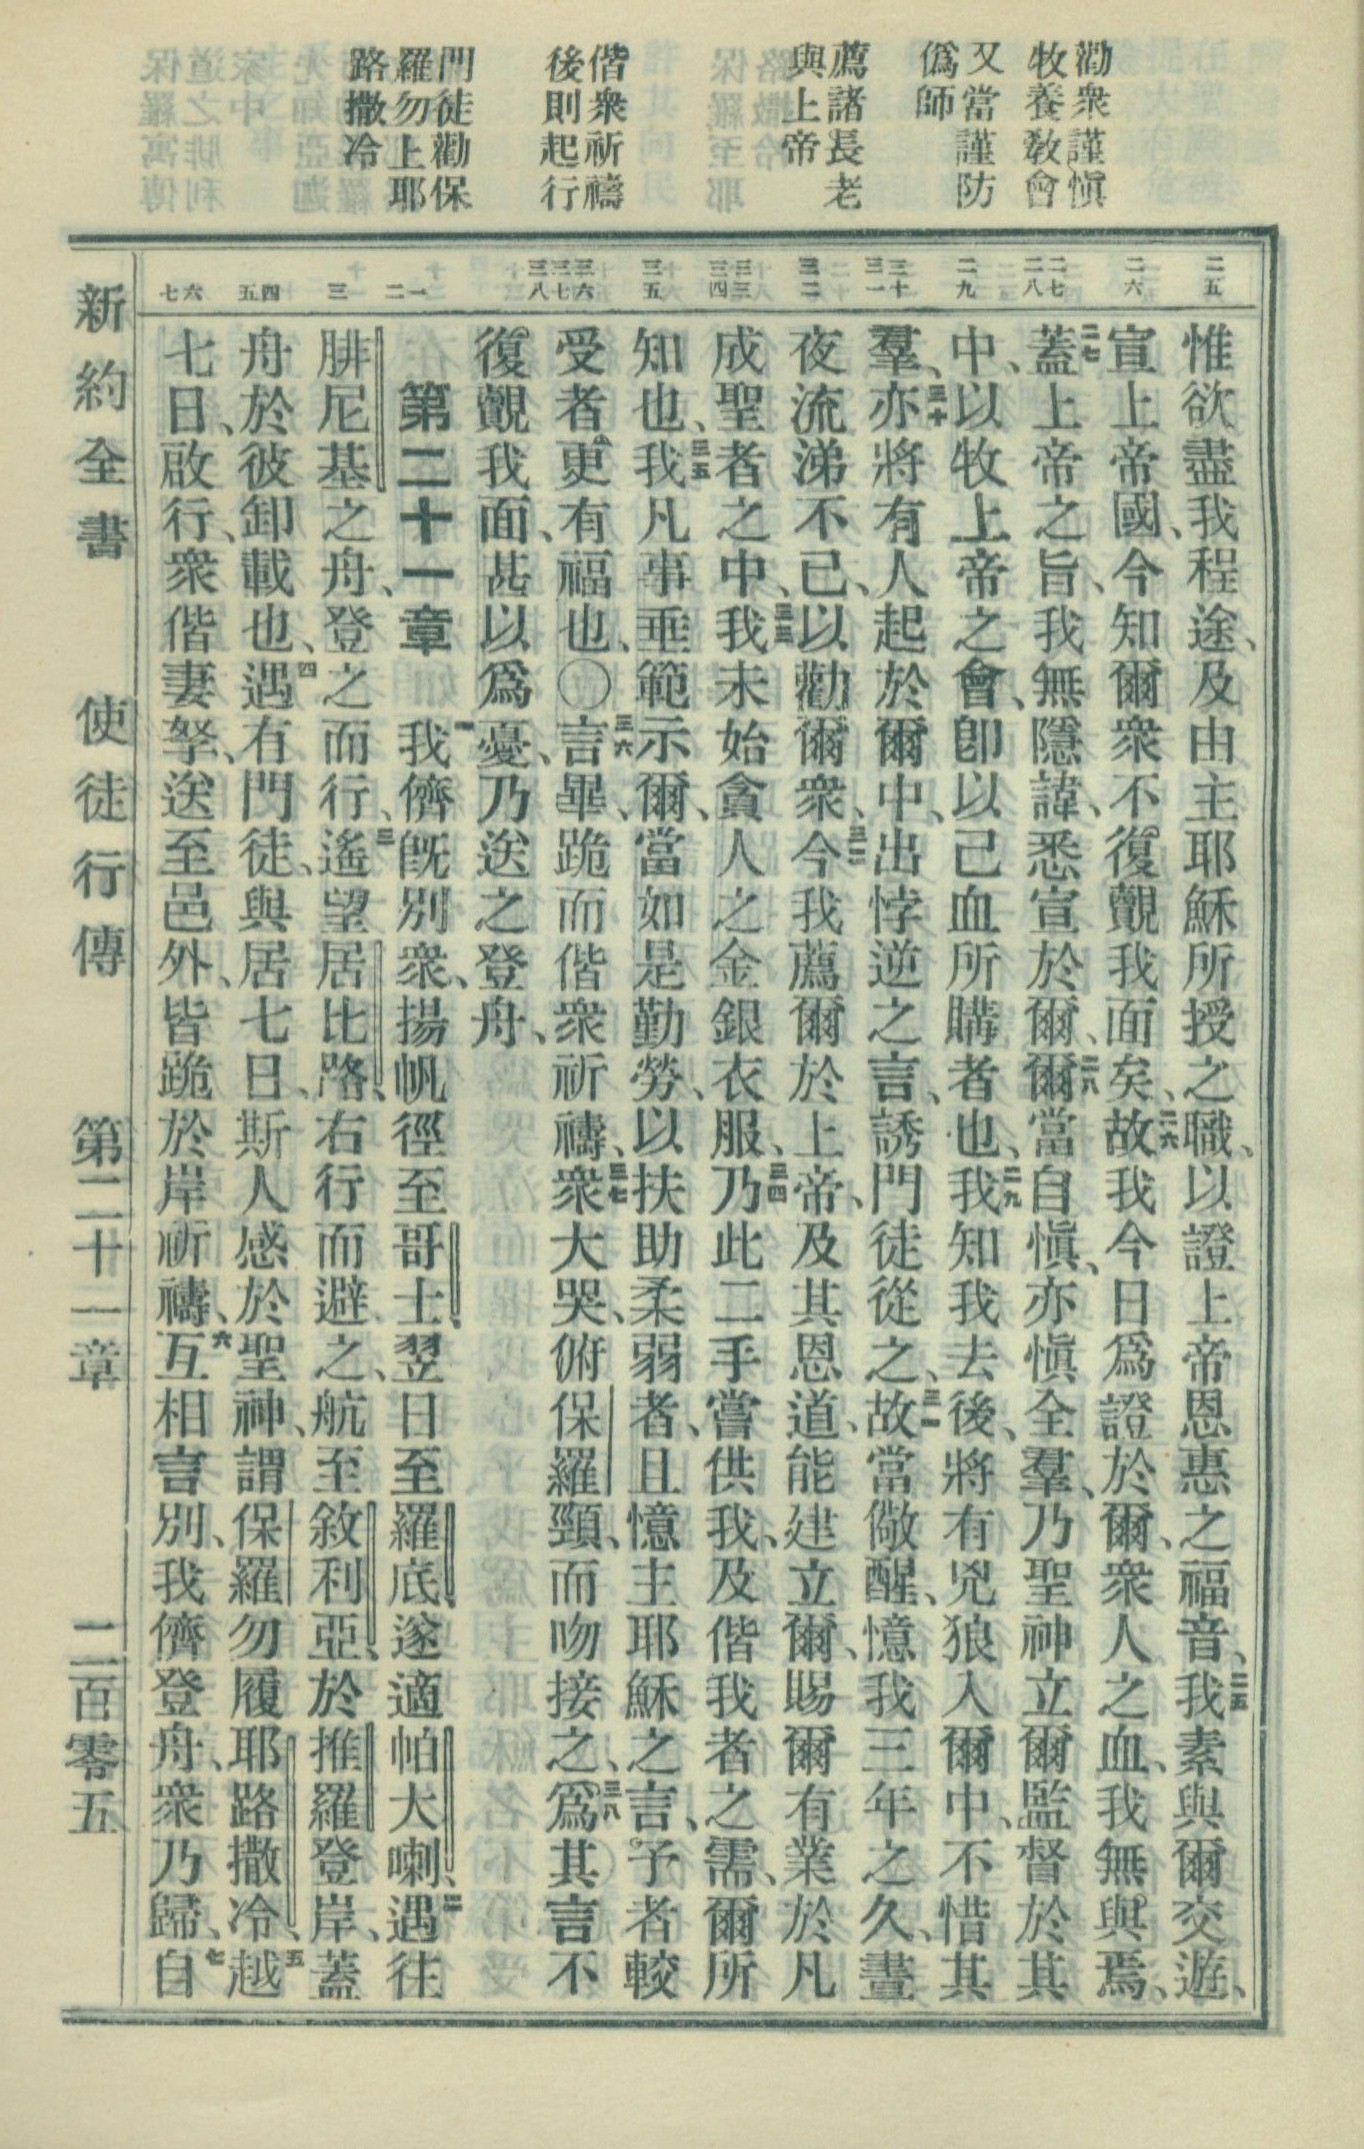 勸衆謹愼
牧養教會
又當謹防
僞師
薦諸長老
與上帝
偕衆祈禱
後則起行
門徒勸保
羅勿上耶
路撒冷
二五
二六
二七
二八
二九
三十
三一
三二
三三
三四
三五
三六
三七
三八
一
二
三
四
五
六
七
惟欲盡我程途、及由主耶穌所授之職、以證上帝恩惠之福音、二五我素與爾交遊、
宣上帝國、今知爾衆不復覿我面矣、二六故我今日爲證於爾、衆人之血、我無與焉、
二七蓋上帝之旨、我無隱諱、悉宣於爾、二八爾當自愼、亦愼全羣、乃聖神立爾監督於其
中、以牧上帝之會、卽以己血所購者也、二九我知我去後、將有兇狼入爾中、不惜其
羣、三十亦將有人起於爾中、出悖逆之言、誘門徒從之、三一故當儆醒、憶我三年之久、晝
夜流涕不已、以勸爾衆、三二今我薦爾於上帝、及其恩道、能建立爾、賜爾有業於凡
成聖者之中、三三我未始貪人之金銀衣服、三四乃此二手嘗供我、及偕我者之需、爾所
知也、三五我凡事垂範示爾、當如是勤勞、以扶助柔弱者、且憶主耶穌之言、予者較
受者更有福也、〇三六言畢、跪而偕衆祈禱、三七衆大哭、俯保羅頸、而吻接之、三八爲其言不
復覿我面、甚以爲憂、乃送之登舟、
第二十一章 一我儕旣別衆、揚帆徑至哥士、翌日至羅底、遂適帕大喇、二遇往
腓尼基之舟、登之而行、三遙望居比路、右行而避之、航至敘利亞、於推羅登岸、蓋
舟於彼卸載也、四遇有門徒、與居七日、斯人感於聖神、謂保羅勿履耶路撒冷、五越
七日、啟行、衆偕妻孥、送至邑外、皆跪於岸祈禱、六互相言別、我儕登舟、衆乃歸、七自
新約全書 使徒行傳 第二十一章 二百零五